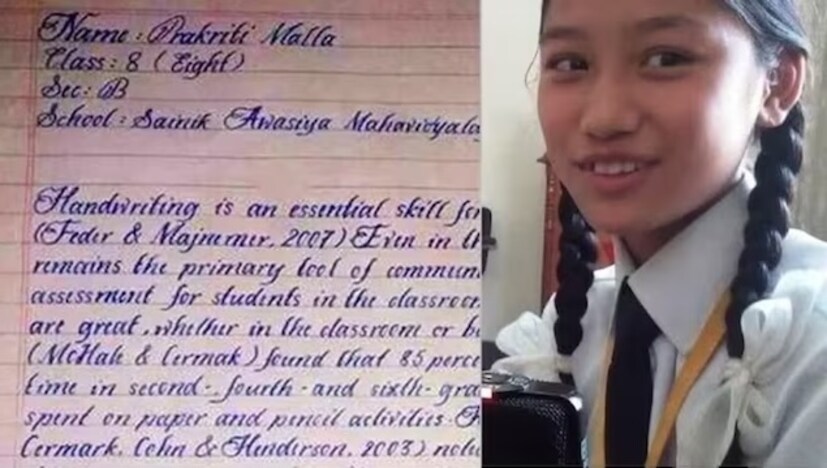 Name : Prakriti Malla
Class : 8 (Eight)
Sec : B
School : Sainik Awasiya Mahavidyala
Handwriting is an essential skill for
(Feder & Majnemer, 2007) Even in th
remains the primary tool of commun
assessment for students in the classroom
are great, whether in the classroom or b
(McHale & Cermak) found that 85 perce
time in second-, fourth- and sixth- gra
spent on paper and pencil activities.
Cermark, Cohn & Henderson, 2003)